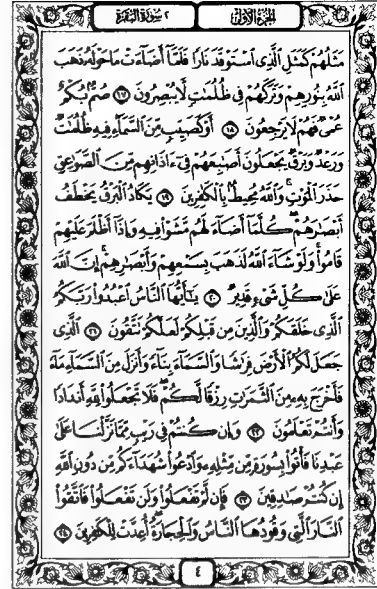 الجزء الأول ٢ سورة البقرة
مَثَلُهُمْ كَمَثَلِ الَّذِى اسْتَوْقَدَ نَارًا فَلَمَّا أَضَآءَتْ مَا حَوْلَهُ ذَهَبَ
اللَّهُ بِنُورِهِمْ وَتَرَكَهُمْ فِى ظُلُمَٰتٍ لَّا يُبْصِرُونَ ١٧ صُمٌّ بُكْمٌ
عُمْىٌ فَهُمْ لَا يَرْجِعُونَ ١٨ أَوْ كَصَيِّبٍ مِّنَ السَّمَآءِ فِيهِ ظُلُمَٰتٌ
وَرَعْدٌ وَبَرْقٌ يَجْعَلُونَ أَصَٰبِعَهُمْ فِىٓ ءَاذَانِهِم مِّنَ الصَّوَٰعِقِ
حَذَرَ الْمَوْتِ وَاللَّهُ مُحِيطٌ بِالْكَٰفِرِينَ ١٩ يَكَادُ الْبَرْقُ يَخْطَفُ
أَبْصَٰرَهُمْ كُلَّمَآ أَضَآءَ لَهُم مَّشَوْا فِيهِ وَإِذَآ أَظْلَمَ عَلَيْهِمْ
قَامُوا وَلَوْ شَآءَ اللَّهُ لَذَهَبَ بِسَمْعِهِمْ وَأَبْصَٰرِهِمْ إِنَّ اللَّهَ
عَلَىٰ كُلِّ شَىْءٍ قَدِيرٌ ٢٠ يَٰٓأَيُّهَا النَّاسُ اعْبُدُوا رَبَّكُمُ
الَّذِى خَلَقَكُمْ وَالَّذِينَ مِن قَبْلِكُمْ لَعَلَّكُمْ تَتَّقُونَ ٢١ الَّذِى
جَعَلَ لَكُمُ الْأَرْضَ فِرَٰشًا وَالسَّمَآءَ بِنَآءً وَأَنزَلَ مِنَ السَّمَآءِ مَآءً
فَأَخْرَجَ بِهِ مِنَ الثَّمَرَٰتِ رِزْقًا لَّكُمْ فَلَا تَجْعَلُوا لِلَّهِ أَندَادًا
وَأَنتُمْ تَعْلَمُونَ ٢٢ وَإِن كُنتُمْ فِى رَيْبٍ مِّمَّا نَزَّلْنَا عَلَىٰ
عَبْدِنَا فَأْتُوا بِسُورَةٍ مِّن مِّثْلِهِ وَادْعُوا شُهَدَآءَكُم مِّن دُونِ اللَّهِ
إِن كُنتُمْ صَٰدِقِينَ ٢٣ فَإِن لَّمْ تَفْعَلُوا وَلَن تَفْعَلُوا فَاتَّقُوا
النَّارَ الَّتِى وَقُودُهَا النَّاسُ وَالْحِجَارَةُ أُعِدَّتْ لِلْكَٰفِرِينَ ٢٤
٤